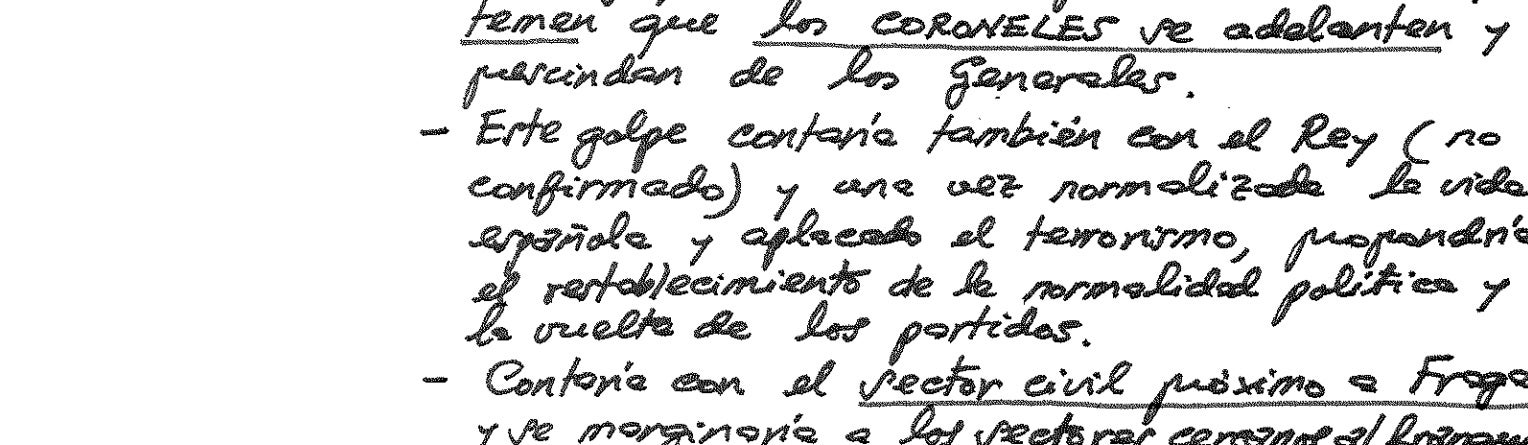 temen que los CORONELES se adelanten y
prescindan de los Generales.
- Este golpe contaría también con el Rey (no
confirmado) y una vez normalizada la vida
española y aplacado el terrorismo, propondría
el restablecimiento de la normalidad política y
la vuelta de los partidos.
- Contaría con el sector civil próximo a Fraga
y se marginaría a los sectores cercanos al